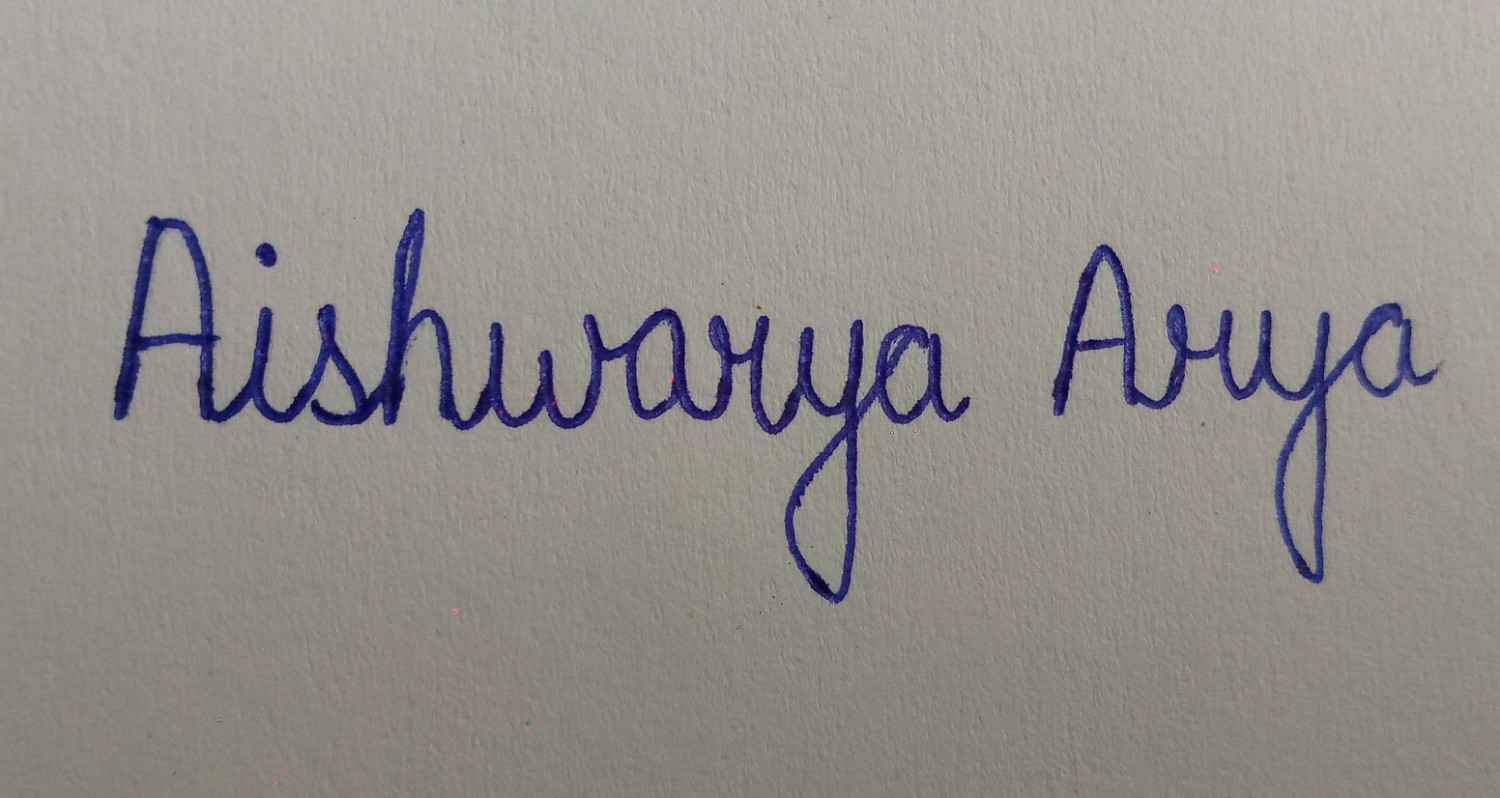 Aishwarya Arya